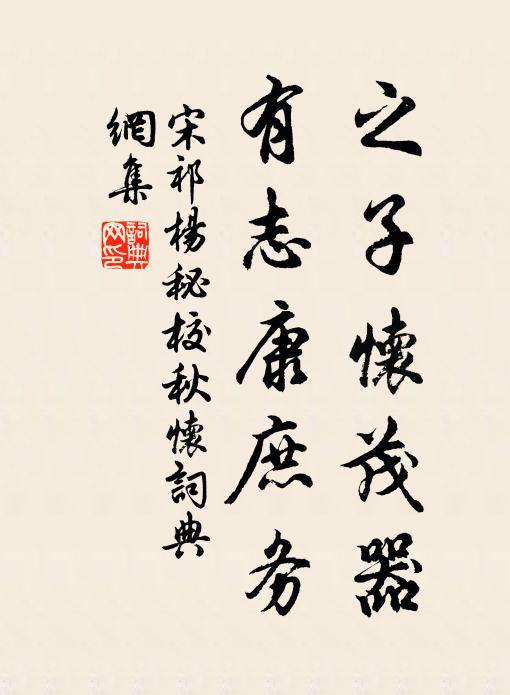 之子懷茂器
有志康庶务
宋祁楊秘校秋懷詞典
網集
詞典
网印